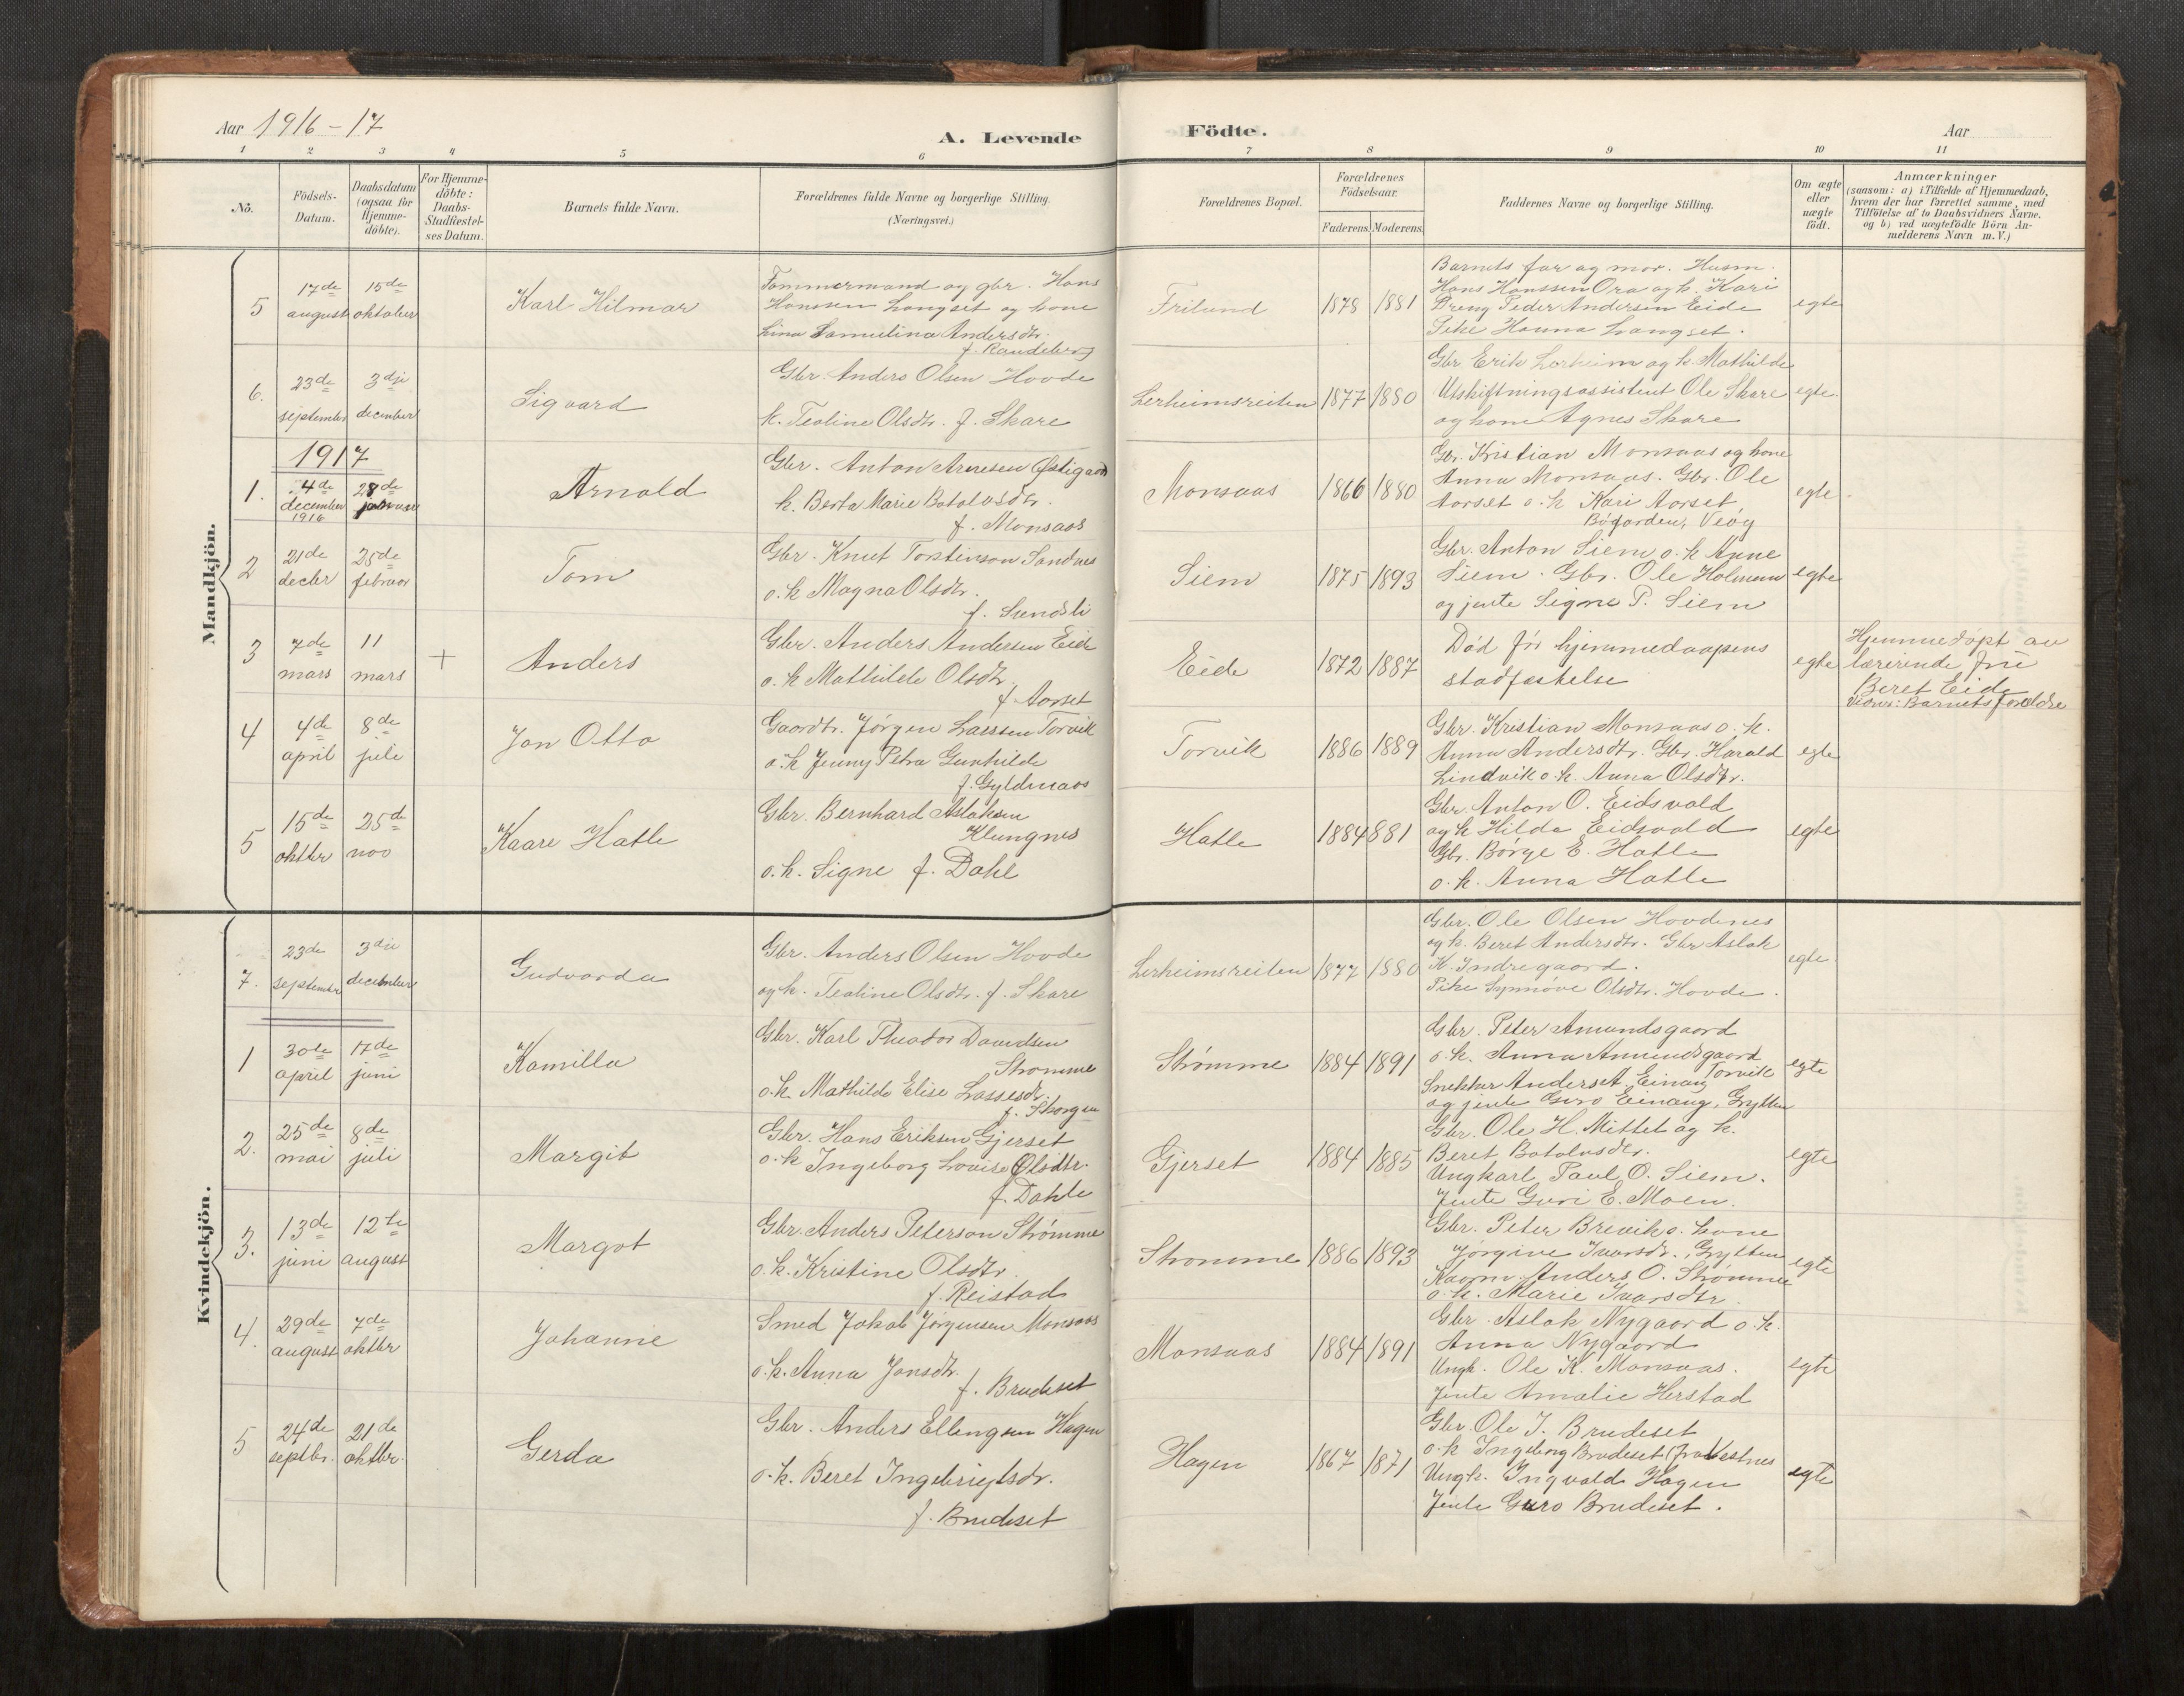 Aar 1916-17
A. Levende
Födte.
Aar
1 2 3 4 5 6 7 8 9 10 11
No.
Födsels-
Datum.
Daabsdatum
(ogsaa for
Hjemme-
döbte).
For Hjemme-
döbte:
Daabs-
Stadfæstel-
ses Datum.
Barnets fulde Navn.
Forældrenes fulde Navne og borgerlige Stilling.
(Næringsvei.)
Forældrenes Bopæl.
Forældrenes
Födselsaar.
Faderens. Moderens.
Faddernes Navne og borgerlige Stilling.
Om ægte
eller
uægte
födt.
Anmærkninger
(saasom: a) i Tilfælde af Hjemmedaab,
hvem der har forrettet samme, med
Tilföielse af to Daabsvidners Navne.
og b) ved uægtefödte Börn An-
melderens Navn m.V.)
Mandkjön.
5
17de
august
15de
oktober
Karl Hilmar
Tømmermand og gbr. Hans
Hanssen Langset og kone
Lina Samuelina Andersdtr.
f. Randeberg
Frilund
1878 1881
Barnets far og mor. Husm.
Hans Hanssen Ora og k. Kari
Dreng Peder Andersen Eide
Pike Hanna Langset.
egte
6.
23de
september
3dje
december
Sigvard
Gbr. Anders Olsen Hovde
k. Tealine Olsdtr. f. Skare
Lerheimsreiten
1877 1880
Gbr. Erik Lerheim og k. Mathilde
Utskiftningsassistent Ole Skare
og kone Agnes Skare
egte.
1917
1.
4de
december
1916
28de
januar
Arnold
Gbr. Anton Arnesen Østigaard
k. Berta Marie Botolvsdtr.
f. Monsaas
Monsaas
1866 1880
Gbr. Kristian Monsaas og kone
Anna Monsaas. Gbr. Ole
Aorset o. k Kari Aorset,
Bøgarden, Veøy
egte
2
21de
decbr
25de
februar
Tom
Gbr. Knut Torstinson Sandnes
o. k Magna Olsdtr.
f. Sundsli
Siem
1875 1893
Gbr. Anton Siem o. k Anne
Siem. Gbr. Ole Holmem
og jente Signe P. Siem
egte
3
7de
mars
11
mars
+
Anders
Gbr. Anders Andersen Eide
o. k Mathilde Olsdtr.
f Aorset
Eide
1872 1887
Død før hjemmedaapens
stadfæstelse
egte
Hjemmedøpt av
lærerinde fru
Beret Eide
Vidner: Barnets foreldre
4
4de
april
8de
juli
Jon Otto
Gaardbr. Jørgen Larssen Torvik
o. k Jenny Petra Gunhilde
f. Gyldmaas
Torvik
1886 1889
Gbr. Kristian Monsaas o. k.
Anna Andersdtr. Gbr. Harald
Lindvik o. k. Anna Olsdtr.
egte
5
15de
oktbr
25de
nov
Kaare Hatle
Gbr. Bernhard Aslaksen
Klungnes
o. k. Signe f. Dahl
Hatle
1884 881
Gbr. Anton O. Eidsvold
og k Hilda Eidsvold
Gbr. Børge E. Hatle
o. k. Anna Hatle
egte
Kvindekjön.
7.
23de
september
3die
december
Gudvarda
Gbr. Anders Olsen Hovde
og k. Tealine Olsdtr. f. Skare
Lerheimsreiten
1877 1880
Gbr. Ole Olsen Hovdenes
og k. Beret Andersdtr. Gbr Aslak
K. Indregaard.
Pike Synnøve Olsdtr. Hovde.
egte.
1
30te
april
17de
juni
Kamilla
Gbr. Karl Theodor Davidsen
Strømme
o. k. Mathilde Elise Lassesdr.
f. Skorgen
Strømme
1884 1891
Gbr. Peter Amundsgaard
o. k. Anna Amundsgaard
Torvik
Snekker Anderset Einang
og jente Guro Einang, Grytten
egte
2.
25de
mai
8de
juli
Margit
Gbr. Hans Eriksen Gjerset
o. k Ingeborg Lovise Olsdtr.
f. Dahle
Gjerset
1884 1885
Gbr. Ole H. Mittet og k.
Beret Botolvsdtr.
Ungkarl Paul O. Siem.
Jente Guri E. Moen.
egte
3.
13de
juni
12te
august
Margot
Gbr. Anders Peterson Strømme
o. k. Kristine Olsdtr
f. Reistad
Strømme
1886 1893
Gbr. Peter Brevik o. kone
Jørgine Ivarsdr., Grytten
Kaarm. Anders O. Strømme
o. k. Marie Ivarsdtr
egte
4.
29de
august
7de
oktbr
Johanne
Smed Jakob Jørgensen Monsaas
o. k. Anna Jonsdtr.
f. Brudeset
Monsaas
1884 1891
Gbr. Aslak Nygaard o. k.
Anna Nygaard
Ungk. Ole K. Monsaas.
Jente Amalie Herstad
egte
5
24de
septbr.
21de
oktbr.
Gerda
Gbr. Anders Ellingsen Hagen
o. k. Beret Ingebrigtsdr.
f. Brudeset
Hagen
1867 1871
Gbr. Ole J. Brudeset
o. k Ingeborg Brudeset (fra Vestnes
Ungk. Ingvald Hagen
Jente Guro Brudeset.
egte